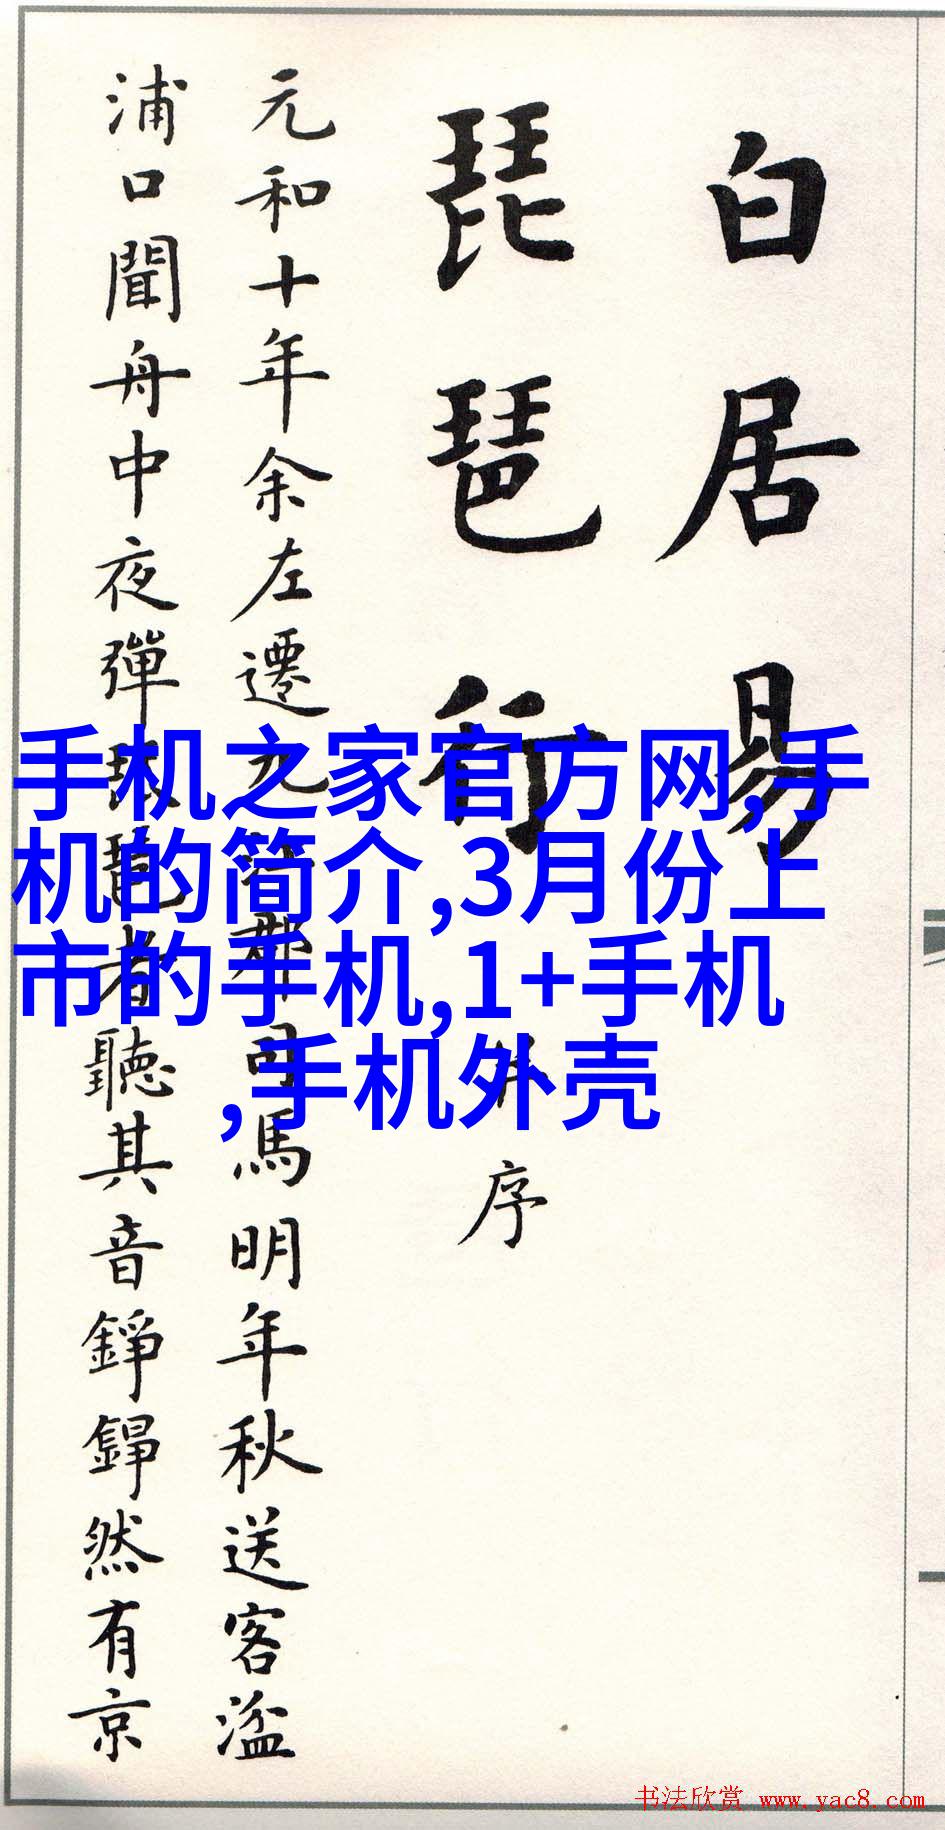 白居易
琵琶行
并序
元和十年余左遷九江郡司馬明年秋送客湓
浦口聞舟中夜彈琵琶者聽其音錚錚然有京
手机之家官方网,手
机的简介,3月份上
市的手机,1+手机
,手机外壳
书法欣赏 www.yac8.com